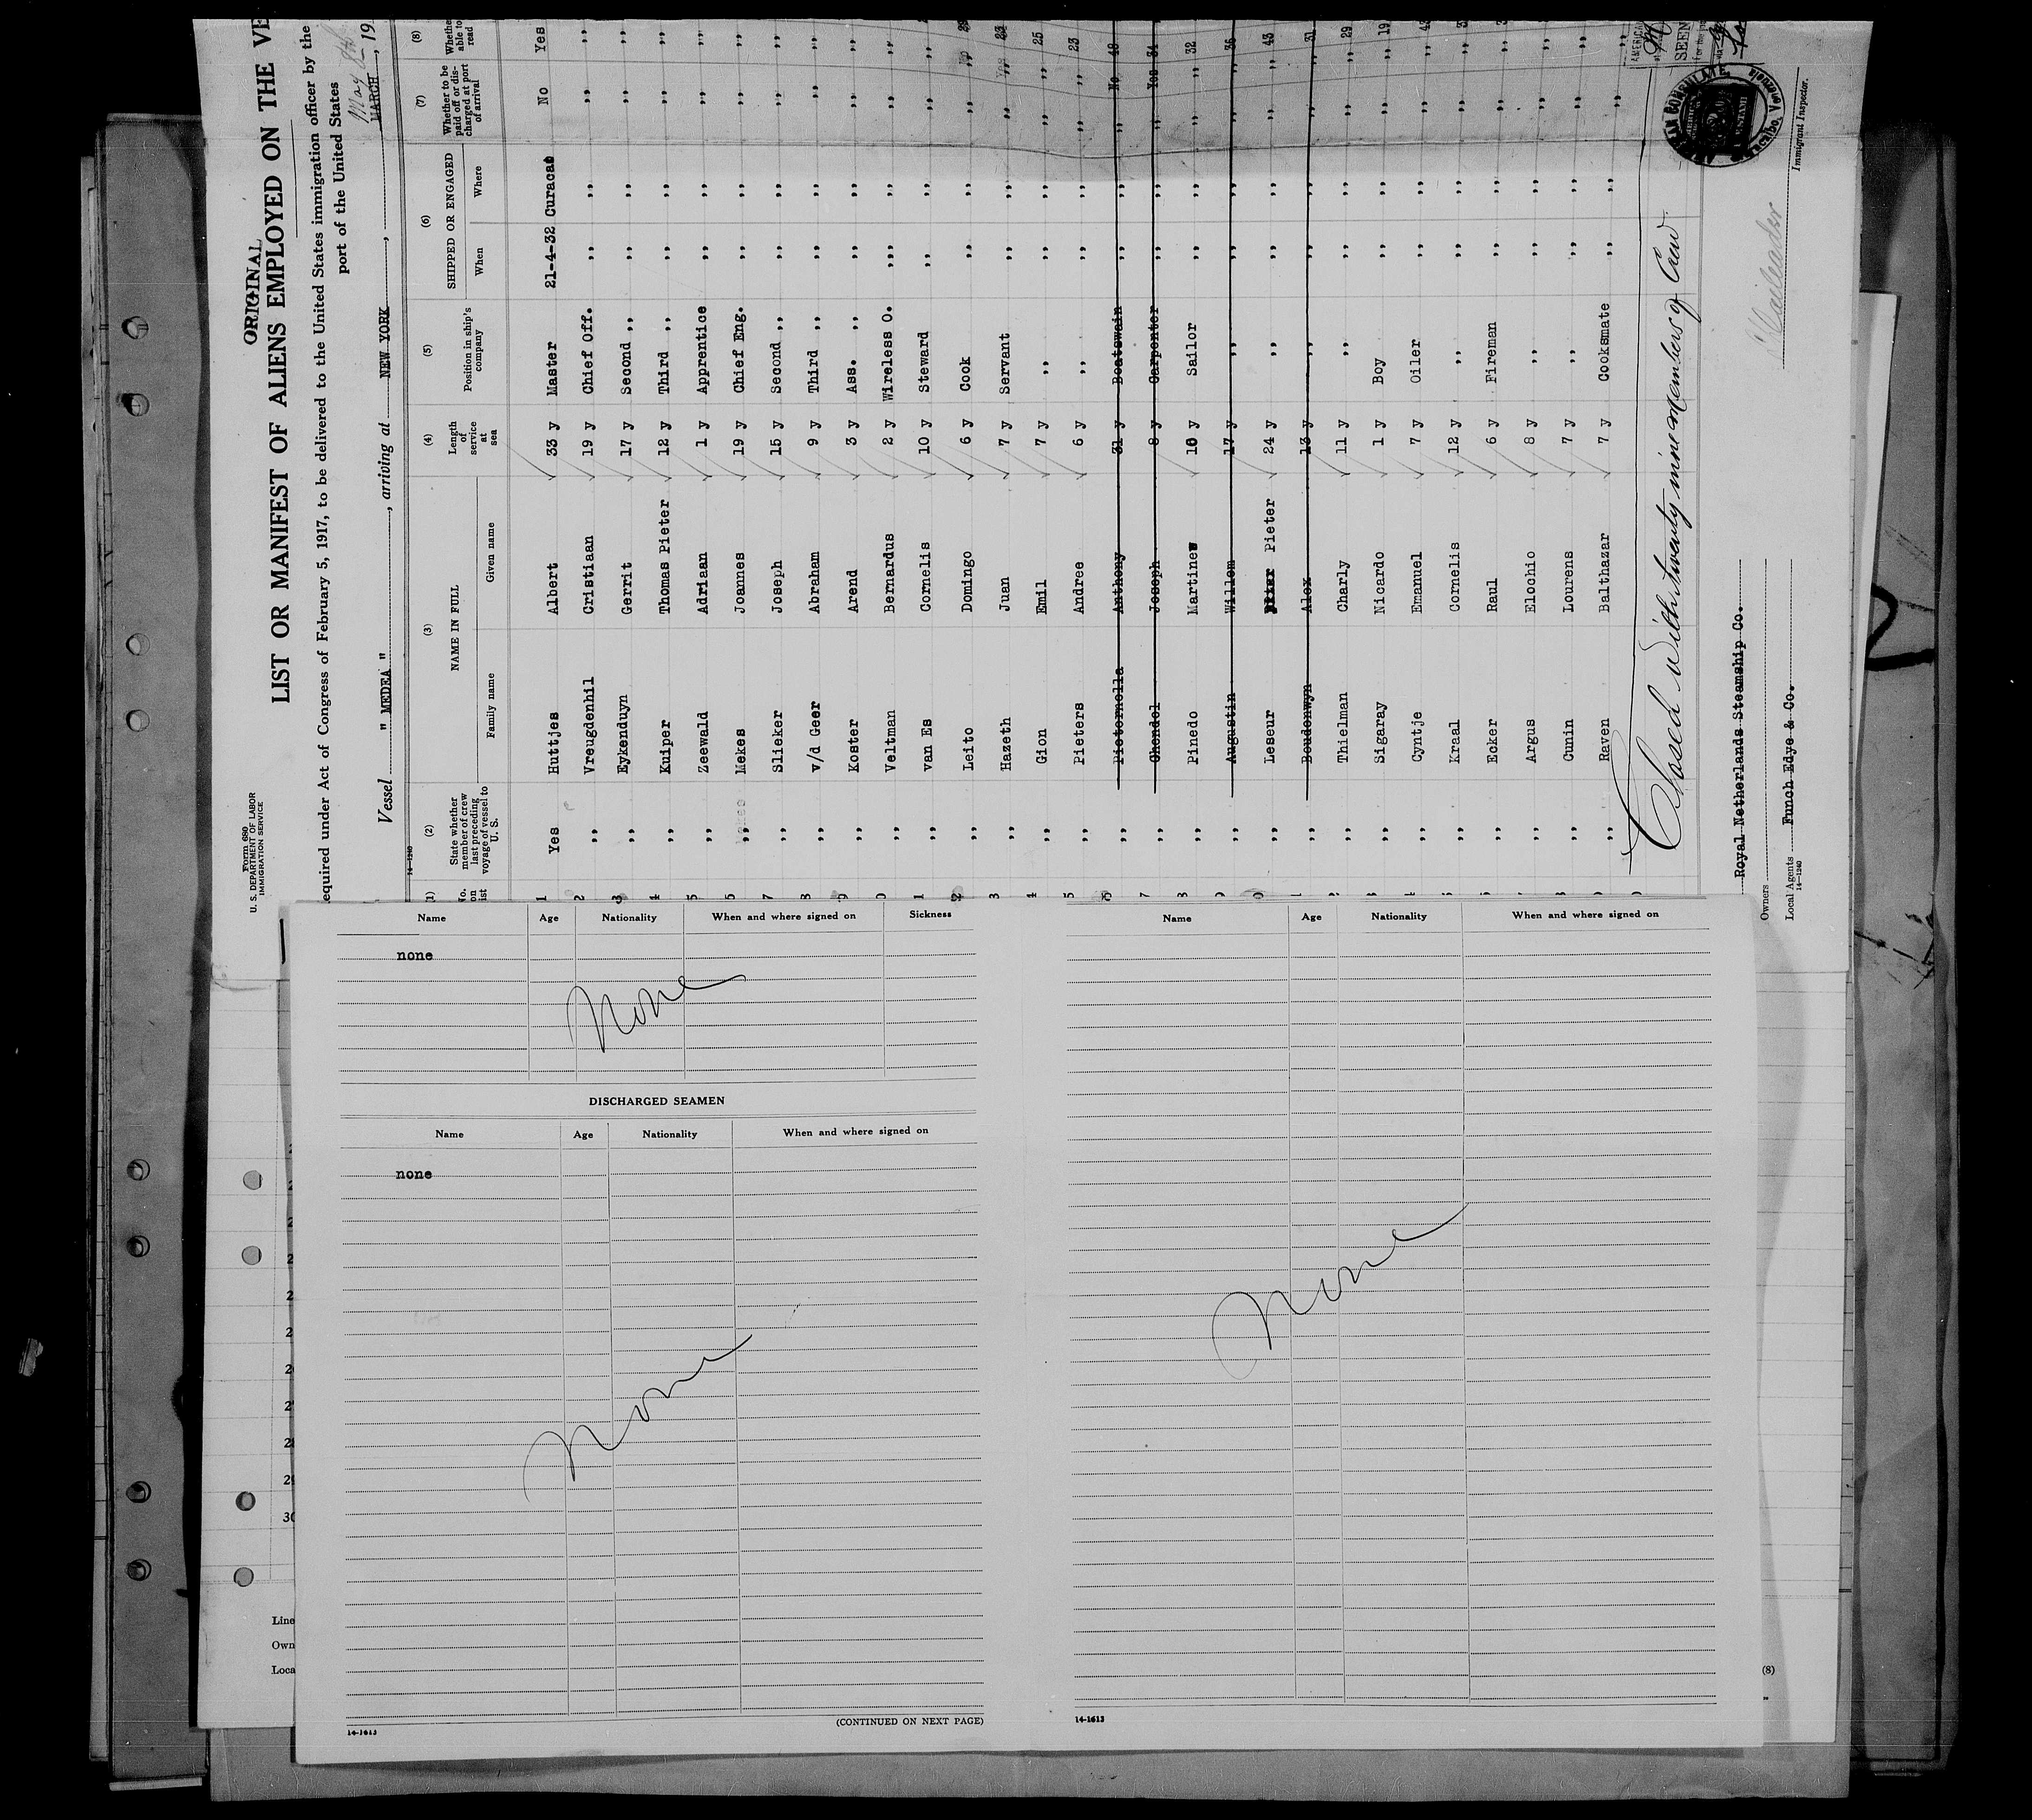 Form 680
U. S. DEPARTMENT OF LABOR
IMMIGRATION SERVICE
ORIGINAL
LIST OR MANIFEST OF ALIENS EMPLOYED ON THE VE
equired under Act of Congress of February 5, 1917, to be delivered to the United States immigration officer by the
port of the United States
Vessel " MEDEA ", arriving at NEW YORK, May 8th MARCH, 19
14-1240
(1) (2) (3) (4) (5) (6) (7) (8)
No. on list
State whether member of crew last preceding voyage of vessel to U. S.
NAME IN FULL
Family name Given name
Length of service at sea
Position in ship's company
SHIPPED OR ENGAGED
When Where
Whether to be paid off or discharged at port of arrival
Whether able to read
1 Yes Huttjes Albert 33 y Master 21-4-32 Curacao No Yes
2 ,, Vreugdenhil Cristiaan 19 y Chief Off. ,, ,, ,, ,,
3 ,, Eykenduyn Gerrit 17 y Second ,, ,, ,, ,, ,,
4 ,, Kuiper Thomas Pieter 12 y Third ,, ,, ,, ,, ,,
5 ,, Zeewald Adriaan 1 y Apprentice ,, ,, ,, ,,
5 ,, Mekes Joannes 19 y Chief Eng. ,, ,, ,, ,,
7 ,, Slieker Joseph 15 y Second ,, ,, ,, ,, ,,
8 ,, v/d Geer Abraham 9 y Third ,, ,, ,, ,, ,,
9 ,, Koster Arend 3 y Ass. ,, ,, ,, ,, ,,
0 ,, Veltman Bernardus 2 y Wireless O. ,, ,, ,, ,,
1 ,, van Es Cornelis 10 y Steward ,, ,, ,, ,,
2 ,, Leito Domingo 6 y Cook ,, ,, ,,
3 ,, Hazeth Juan 7 y Servant ,, ,, ,,
4 ,, Gion Emil 7 y ,, ,, ,, ,, ,, 25
5 ,, Pieters Andree 6 y ,, ,, ,, ,, ,, 23
6 ,, Pieternella Anthony 31 y Boatswain ,, ,, ,, No 48
7 ,, Ghondel Joseph 8 y Carpenter ,, ,, ,, Yes 34
8 ,, Pinedo Martines 10 y Sailor ,, ,, ,, ,, 32
9 ,, Augustin Willem 17 y ,, ,, ,, ,, ,, 36
0 ,, Leseur Pieter 24 y ,, ,, ,, ,, ,, 43
1 ,, Boudonwyn Alex 13 y ,, ,, ,, ,, ,, 31
2 ,, Thielman Charly 11 y ,, ,, ,, ,, ,, 29
3 ,, Sigaray Nicardo 1 y Boy ,, ,, ,, ,, 19
4 ,, Cyntje Emanuel 7 y Oiler ,, ,, ,, ,,
5 ,, Kraal Cornelis 12 y ,, ,, ,, ,, ,,
6 ,, Ecker Raul 6 y Fireman ,, ,, ,, ,,
7 ,, Argus Elochio 8 y ,, ,, ,, ,, ,,
,, Cunin Lourens 7 y ,, ,, ,, ,, ,,
,, Raven Balthazar 7 y Cooksmate ,, ,, ,, ,,
Closed with twenty nine members of Crew
Owners Royal Netherlands Steamship Co.
Local Agents Funch Edye & Co.
14-1240
Immigrant Inspector.
AMERICAN CONSULATE
Maracaibo, Venezuela
AMERICAN
SEEN
Name Age Nationality When and where signed on Sickness
none
None
DISCHARGED SEAMEN
Name Age Nationality When and where signed on
none
None
14-1613
(CONTINUED ON NEXT PAGE)
Name Age Nationality When and where signed on
None
14-1613
30
Line
Own
Loca
(8)